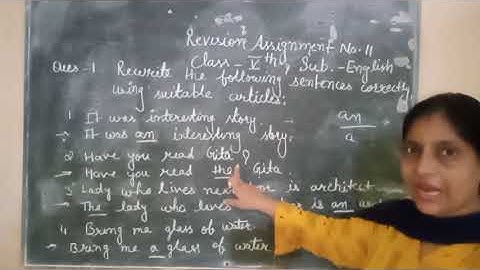 Revision Assignment No. 11
Class - Vth, Sub. - English
Ques-1 Rewrite the following sentences correctly
using suitable articles:
1 It was interesting story. an
→ It was an interesting story. a
2 Have you read Gita?
→ Have you read the Gita
3 Lady who lives next is architect
→ The lady who lives is an
4 Bring me glass of water.
→ Bring me a glass of water